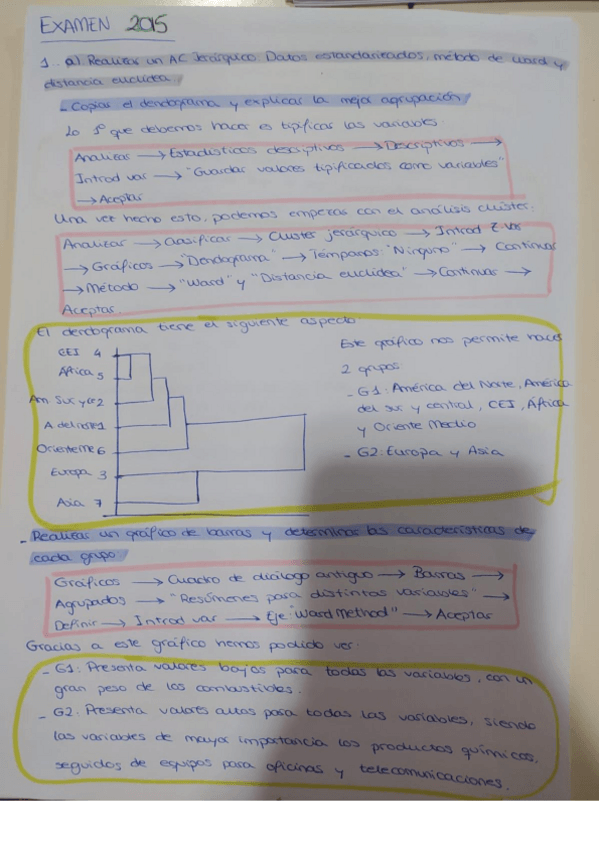 EXAMEN 2015
1. a) Realizar un AC Jerárquico. Datos estandarizados, método de ward y
distancia euclídea.
- Copiar el dendograma y explicar la mejor agrupación
Lo 1º que debemos hacer es tipificar las variables.
Analizar → Estadísticos descriptivos → Descriptivos →
Introd var → "Guardar valores tipificados como variables"
→ Aceptar
Una vez hecho esto, podemos empezar con el análisis cluster:
Analizar → Clasificar → Cluster jerárquico → Introd Z var
→ Gráficos → "Dendograma" → Témpanos: "Ninguno" → Continuar
→ Método → "Ward" y "Distancia euclídea" → Continuar →
Aceptar.
El dendograma tiene el siguiente aspecto:
CEI 4
África 5
Am Sur y c 2
A del norte 1
Oriente Me 6
Europa 3
Asia 7
Este gráfico nos permite hacer
2 grupos
- G1: América del Norte, América
del sur y central, CEI, África
y Oriente Medio
- G2: Europa y Asia
- Realizar un gráfico de barras y determinar las características de
cada grupo
Gráficos → Cuadro de diálogo antiguo → Barras →
Agrupados → "Resúmenes para distintas variables" →
Definir → Introd var → Eje "Ward Method" → Aceptar
Gracias a este gráfico hemos podido ver:
- G1: Presenta valores bajos para todas las variables, con un
gran peso de los combustibles.
- G2: Presenta valores altos para todas las variables, siendo
las variables de mayor importancia los productos químicos,
seguidos de equipos para oficinas y telecomunicaciones.